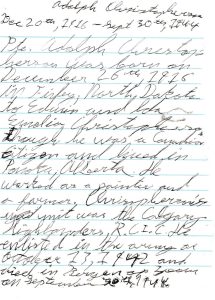 Adolph Christopherson
Dec 20th, 1916 - Sept 30th, 1944
Pte. Adolph Christop
herson was born on
December 20th, 1916
in North, Dakota
to Edwin and
Emelia Christopherson
though he was a Canadian
citizen and lived in
Ponoka, Alberta. He
worked as a painter and
a farmer, Christopherson's
unit was the Calgary
Highlanders, R.C.I.C. He
enlisted in the army on
October 23, 1942 and
died in
on September 30th, 1944.